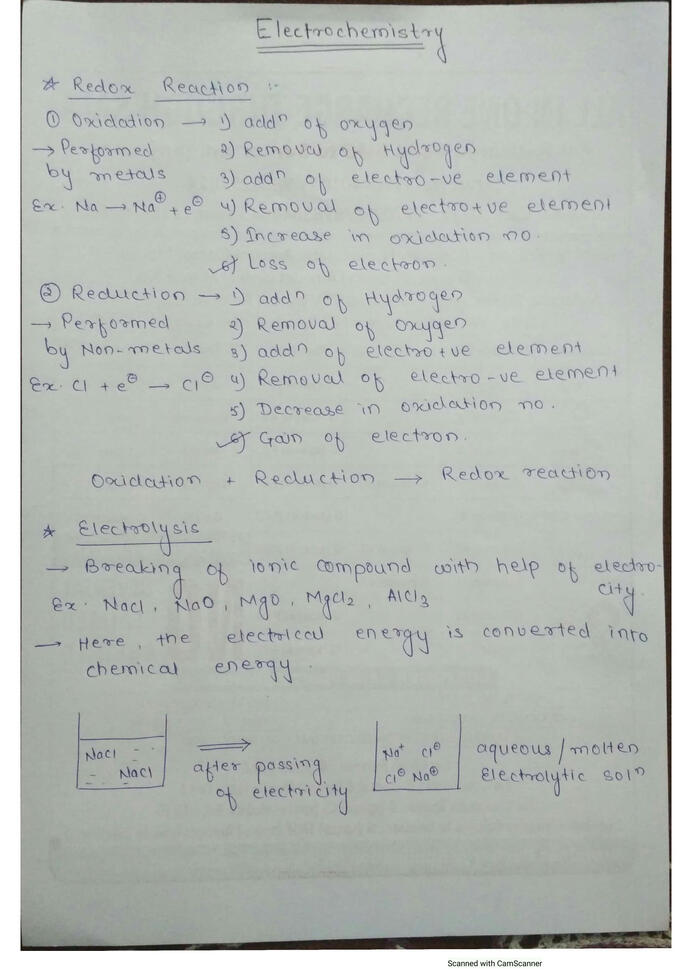 Electrochemistry
☆ Redox Reaction :-
① Oxidation → 1) addⁿ of oxygen
→ Performed 2) Removal of Hydrogen
by metals 3) addⁿ of electro-ve element
Ex. Na → Na⊕ + e⊖ 4) Removal of electro+ve element
5) Increase in oxidation no.
6) Loss of electron.
② Reduction → 1) addⁿ of Hydrogen
→ Performed 2) Removal of oxygen
by Non-metals 3) addⁿ of electro+ve element
Ex. Cl + e⊖ → Cl⊖ 4) Removal of electro-ve element
5) Decrease in oxidation no.
6) Gain of electron.
Oxidation + Reduction → Redox reaction
☆ Electrolysis
→ Breaking of ionic compound with help of electro-
city.
Ex. NaCl, NaO, MgO, MgCl₂, AlCl₃
→ Here, the electrical energy is converted into
chemical energy.
NaCl
NaCl
⇒
after passing
of electricity
Na⁺ Cl⊖
Cl⊖ Na⊕
aqueous/molten
Electrolytic solⁿ
Scanned with CamScanner